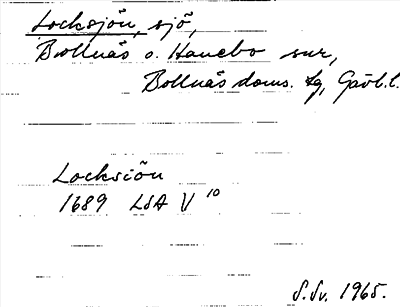 Locksjön, sjö,
Bollnäs o. Hanebo snr,
Bollnäs doms. tg, Gävl.l.
Locksiön
1689 LSA V 10
S.Sv. 1965.